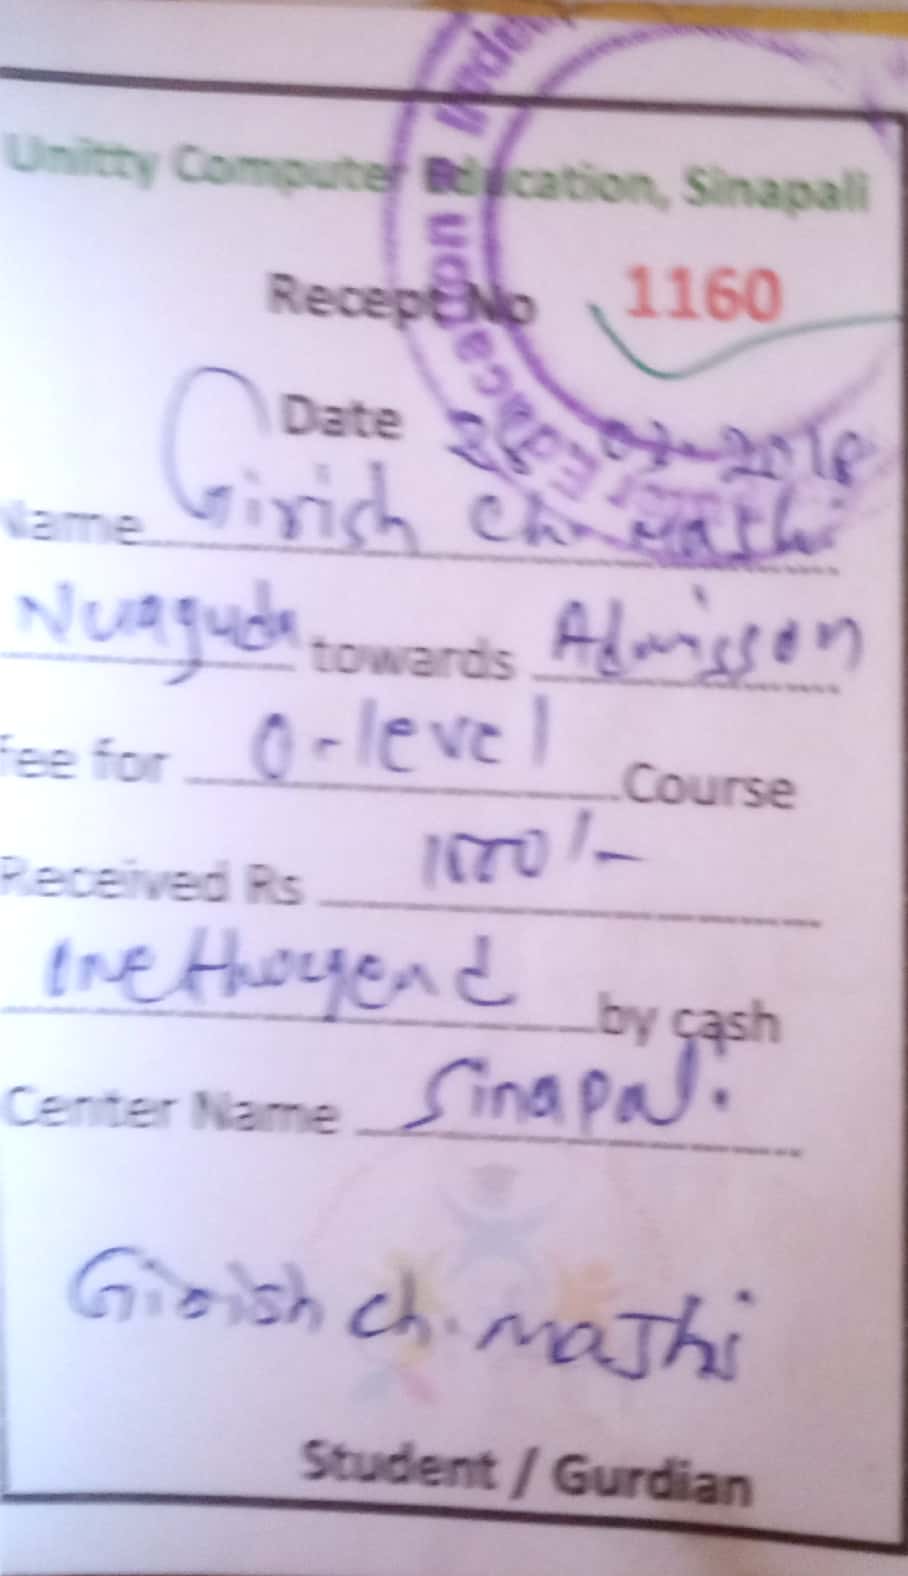 Unitty Computer Education, Sinapali
Recept No 1160
Date 28-07-2018
Name Girish Ch. Majhi
Nuaguda towards Admisson
fee for O-level Course
Received Rs 1000/-
One thousend by cash
Center Name Sinapali
Girish Ch. Majhi
Student / Gurdian